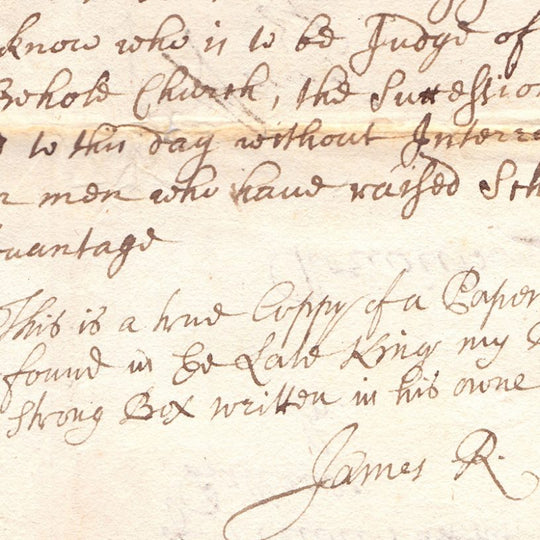 know who is to be Judge of
whole Church, the Suttession
to this day without Interr
men who have raised Sch
vantage
This is a true Coppy of a Paper
found in he Late Kings my
strong Box written in his owne
James R.